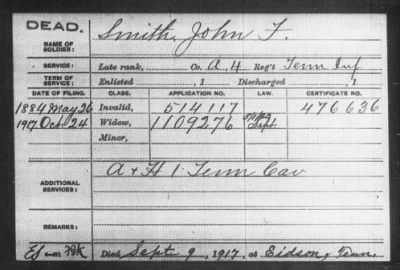 DEAD.
Smith, John F.
NAME OF SOLDIER:
SERVICE: Late rank, Co. A, 4 Reg't Tenn Inf
TERM OF SERVICE: Enlisted , 1 Discharged , 1
DATE OF FILING. CLASS. APPLICATION NO. LAW. CERTIFICATE NO.
1884 May 26 Invalid, 514117 476636
1917 Oct 24 Widow, 1109276 Sept.
Minor,
A + H 1 Tenn Cav
ADDITIONAL SERVICES:
REMARKS:
Died Sept 9, 1917, at Eidson, Tenn.